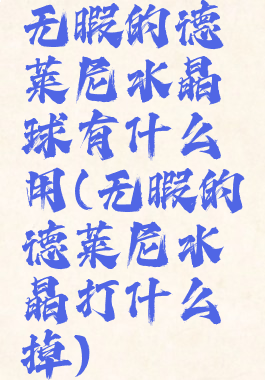 无暇的德
莱尼水晶
球有什么
用(无暇的
德莱尼水
晶打什么
掉)